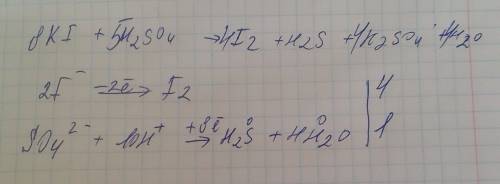 8KI + 5H2SO4 → 4I2 + H2S + 4K2SO4 + 4H2O
2I⁻ —2ē→ I2 | 4
SO4²⁻ + 10H⁺ +8ē→ H2S + 4H2O | 1